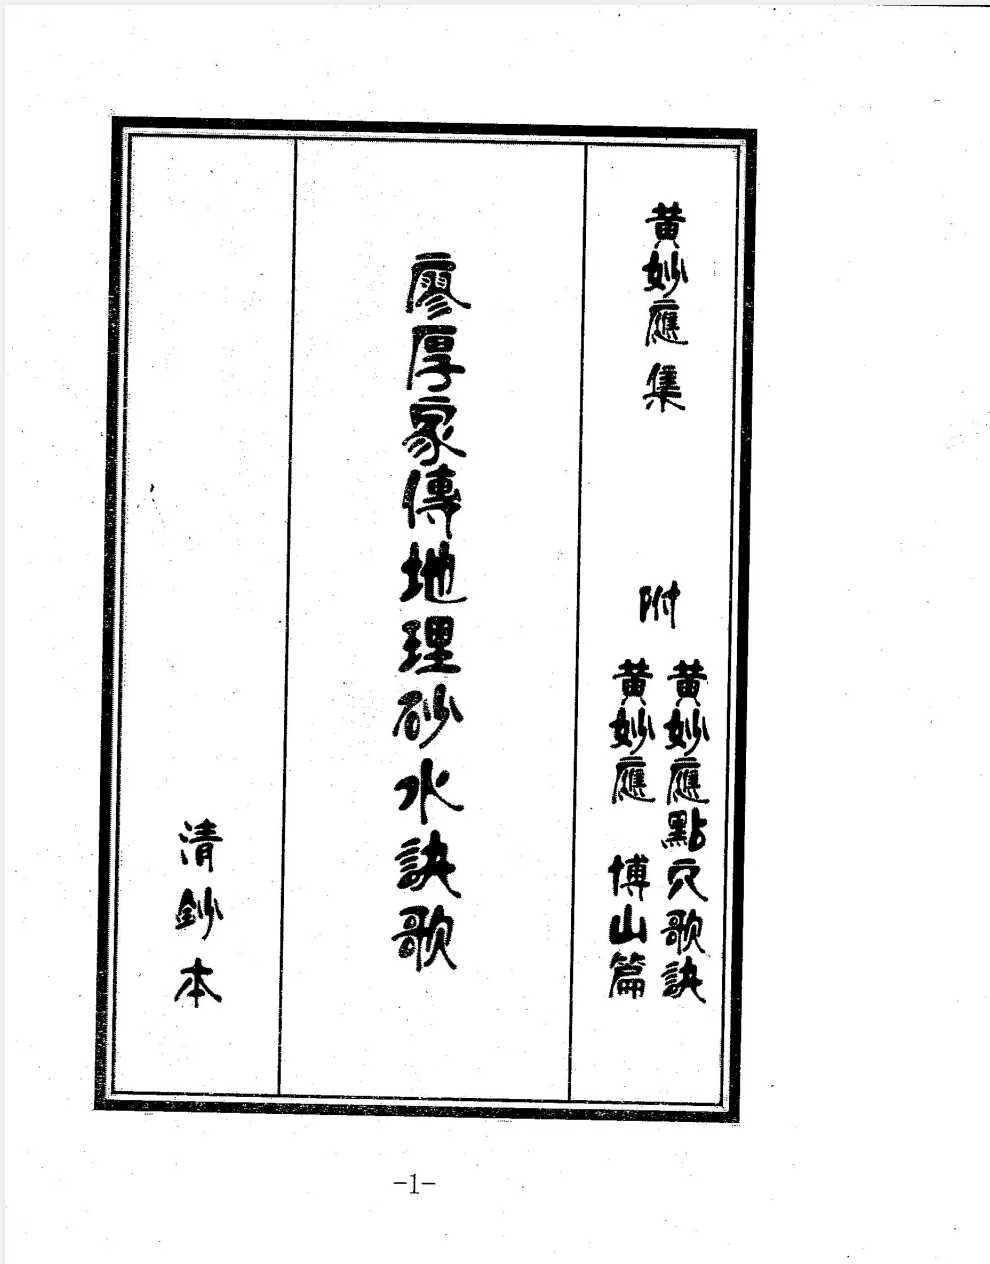 黄妙應集
附
黄妙應點穴歌訣
黄妙應 博山篇
廖厚家傳地理砂水訣歌
清鈔本
-1-